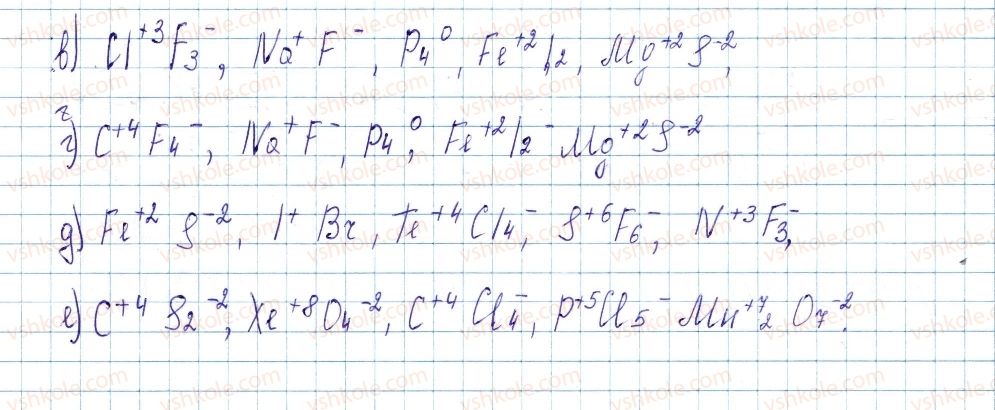 в) Cl⁺³F₃⁻, Na⁺F⁻, P₄⁰, Fe⁺²I₂, Mg⁺²S⁻²,
г) C⁺⁴F₄⁻, Na⁺F⁻, P₄⁰, Fe⁺²I₂⁻ Mg⁺²S⁻²
д) Fe⁺² S⁻², I⁺ Br, Te⁺⁴Cl₄⁻, S⁺⁶F₆⁻, N⁺³F₃⁻,
е) C⁺⁴ S₂⁻², Xe⁺⁸O₄⁻², C⁺⁴ Cl₄⁻, P⁺⁵Cl₅⁻ Mn₂⁺⁷ O₇⁻².